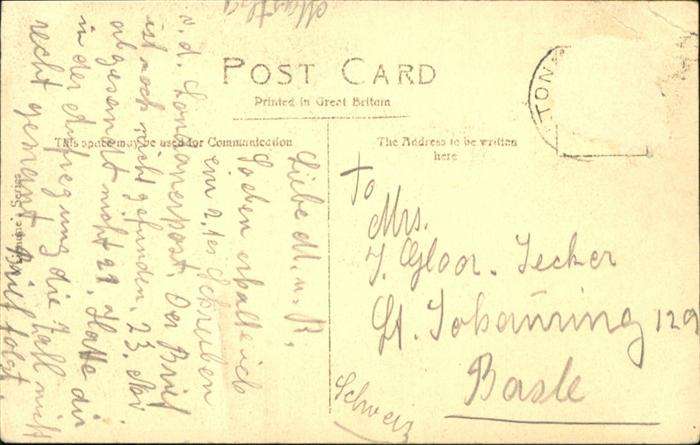 POST CARD
Printed in Great Britain
This space may be used for Communication
The Address to be written
here
TON
Liebe M. u. R.
Soeben erhalte ich
ein 2. tes Schreiben
v. d. Londonerpost. Der Brief
ist noch nicht gefunden. 23. Nov
abgesandt nicht 21. Hatte dir
in der Aufregung die Zahl nicht
recht genannt. Brief folgt.
To
Mrs.
J. Gloor. Jecker
St. Johannring 129
Basle
Schweiz
Series